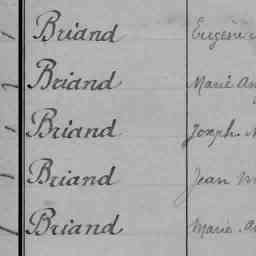 Briand Eugène
Briand Marie
Briand Joseph
Briand Jean
Briand Marie